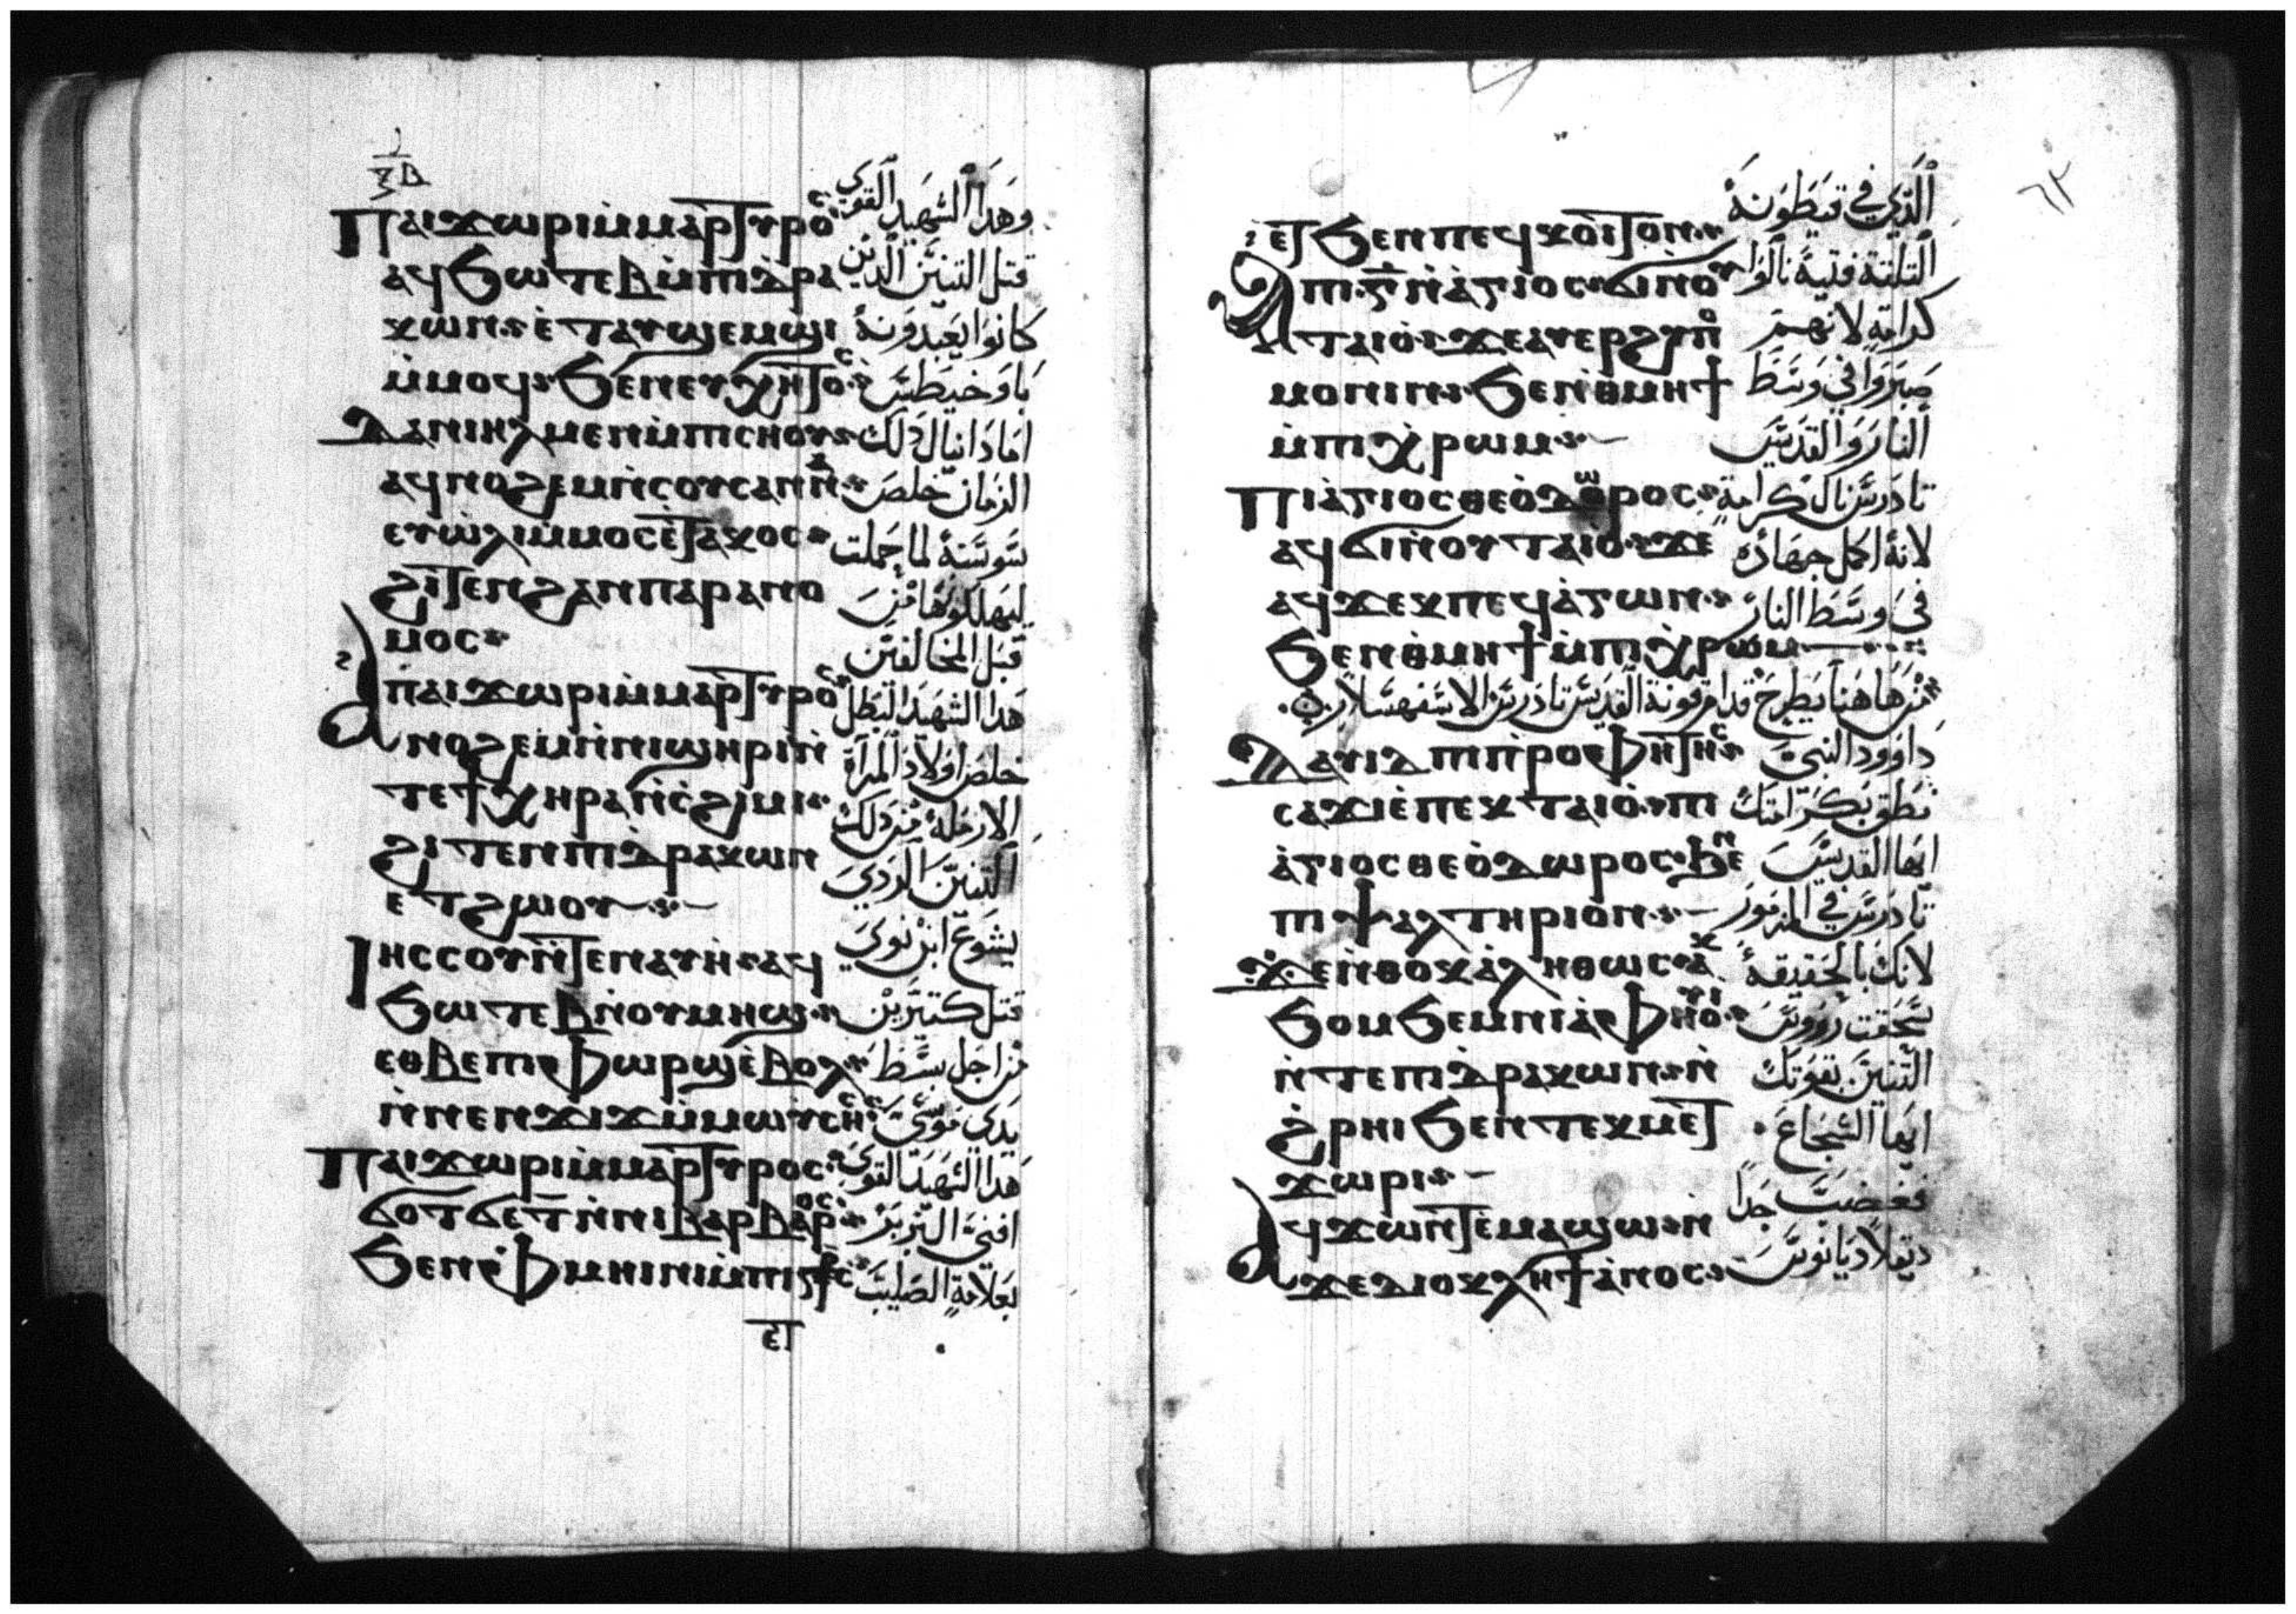 ⲝⲃ
ⲡⲁⲓϫⲱⲣⲓ ⲙ̀ⲙⲁⲣⲧⲩⲣⲟⲥ وهدا الشهيد القوي
ⲁϥϧⲱⲧⲉⲃ ⲙ̀ⲡⲓⲇ̀ⲣⲁ قتل التنين الدين
ⲕⲱⲛ ⲉ̀ⲧⲁⲩϣⲉⲙϣⲓ كانوا يعبدونه
ⲙ̀ⲙⲟϥ ϧⲉⲛⲉⲩⲭⲏⲧⲟⲥ باوخيطس
ⲇⲁⲛⲓⲏⲗ ⲙⲉⲛ ⲙ̀ⲡⲓⲥⲏⲟⲩ اما دانيال دلك
ⲁϥⲛⲟϩⲉⲙ ⲛ̀ⲥⲟⲩⲥⲁⲛⲛ̀ⲁ الزمان خلص
ⲉⲩⲱ̀ⲗⲓ ⲙ̀ⲙⲟⲥ ⲉ̀ⲧⲁⲕⲟⲥ سوسنة لما حملت
ϩⲓⲧⲉⲛ ϩⲁⲛⲡⲁⲣⲁⲛⲟ ليهلكوها من
ⲙⲟⲥ قبل المخالفين
ⲁ̀ⲡⲁⲓϫⲱⲣⲓ ⲙ̀ⲙⲁⲣⲧⲩⲣⲟⲥ هدا الشهيد البطل
ⲛⲟϩⲉⲙ ⲛ̀ⲛⲓϣⲏⲣⲓ ⲛ̀ خلص اولاد المراة
ⲧⲉϯⲭⲏⲣⲁ ⲛ̀ⲥ̀ϩⲓⲙⲓ الارملة من دلك
ϩⲓⲧⲉⲛ ⲡⲓⲇ̀ⲣⲁⲕⲱⲛ التنين الردي
ⲉⲧϩⲱⲟⲩ
ⲓⲏⲥⲥⲟⲩ ⲛ̀ⲧⲉⲛⲁⲩⲏ ⲁϥ يشوع ابن نوي
ϧⲱⲧⲉⲃ ⲛ̀ⲟⲩⲙⲏϣ قتل كتيرين
ⲉⲑⲃⲉ ⲡⲓⲫⲱⲣϣ ⲉ̀ⲃⲟⲗ من اجل بسط
ⲛ̀ⲛⲉⲛϫⲓϫ ⲙ̀ⲙⲱⲩ̀ⲥⲏⲥ يدي موسي
ⲡⲁⲓϫⲱⲣⲓ ⲙ̀ⲙⲁⲣⲧⲩⲣⲟⲥ هدا الشهيد القوي
ϭⲟⲧϭⲉⲧ ⲛ̀ⲛⲓⲃⲁⲣⲃⲁⲣⲟⲥ افني البربر
ϧⲉⲛ ⲫ̀ⲙⲏⲓⲛⲓ ⲙ̀ⲡⲓⲥϯⲥ بعلامة الصليب
ⲉⲧ
٦٢
ⲉⲧϧⲉⲛ ⲡⲉϥⲕⲟⲓⲧⲟⲛ الدي في قيطونه
ⲁⲡⲓⲅ̅ ⲛ̀ⲁ̀ⲅⲓⲟⲥ ϭⲓ ⲛⲟⲩ التلتة فتية نالوا
ⲧⲁⲓⲟ̀ ϫⲉ ⲁⲩⲉⲣϩⲩⲡⲟ كرامة لانهم
ⲙⲟⲛⲓⲛ ϧⲉⲛ ⲑⲙⲏϯ صبروا في وسط
ⲙ̀ⲡⲓⲭ̀ⲣⲱⲙ النار والقديس
ⲡⲓⲁ̀ⲅⲓⲟⲥ ⲑⲉⲟ̀ⲇⲱⲣⲟⲥ تادرس نال كرامة
ⲁϥϭⲓ ⲛ̀ⲟⲩⲧⲁⲓⲟ̀ ϫⲉ لانه اكمل جهاده
ⲁϥϫⲉⲕ ⲡⲉϥⲁ̀ⲅⲱⲛ في وسط النار
ϧⲉⲛ ⲑⲙⲏϯ ⲙ̀ⲡⲓⲭ̀ⲣⲱⲙ
من هاهنا يطرح قدام قونة القديس تادرس الاسفهسلار
ⲇⲁⲩⲓⲇ ⲡⲓⲡ̀ⲣⲟⲫⲏⲧⲏⲥ داوود النبي
ⲥⲁϫⲓ ⲉ̀ⲡⲉⲕⲧⲁⲓⲟ̀ ⲡⲓ نطق بكرامتك
ⲁ̀ⲅⲓⲟⲥ ⲑⲉⲟ̀ⲇⲱⲣⲟⲥ ϧⲉⲛ ايها القديس
ⲡⲓⲯⲁⲗⲧⲏⲣⲓⲟⲛ تادرس في المزمور
ϫⲉ ⲛ̀ⲑⲟⲕ ⲁ̀ⲗⲏⲑⲱⲥ ⲁⲕ لانك بالحقيقة
ϧⲟⲙϧⲉⲙ ⲛⲓⲁ̀ⲫⲏⲟⲩⲓ̀ سحقت رووس
ⲛ̀ⲧⲉ ⲡⲓⲇ̀ⲣⲁⲕⲱⲛ ⲛ̀ التنين بقوتك
ϩ̀ⲣⲏⲓ ϧⲉⲛ ⲧⲉⲕⲙⲉⲧ ايها الشجاع
ϫⲱⲣⲓ
ⲁϥϫⲱⲛⲧ ⲉ̀ⲙⲁϣⲱ ⲛ̀ فغضب جدا
ϫⲉ ⲇⲓⲟⲕⲗⲏϯⲁ̀ⲛⲟⲥ ديقلاديانوس